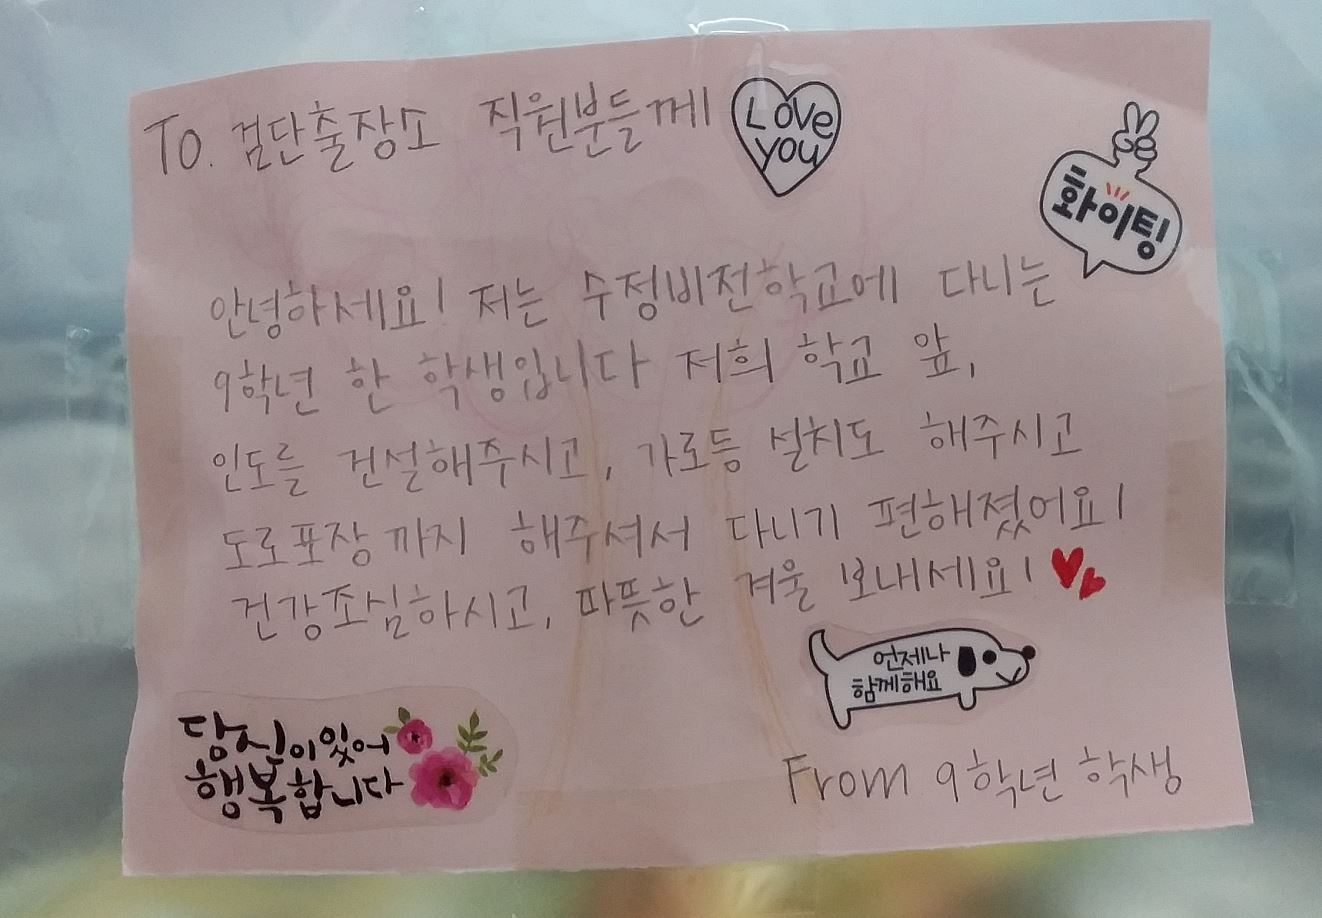 To. 검단출장소 직원분들께
Love
you
화이팅
안녕하세요! 저는 수정비전학교에 다니는
9학년 한 학생입니다 저희 학교 앞,
인도를 건설해주시고, 가로등 설치도 해주시고
도로포장까지 해주셔서 다니기 편해졌어요!
건강조심하시고, 따뜻한 겨울 보내세요!
언제나
함께해요
당신이있어
행복합니다
From 9학년 학생